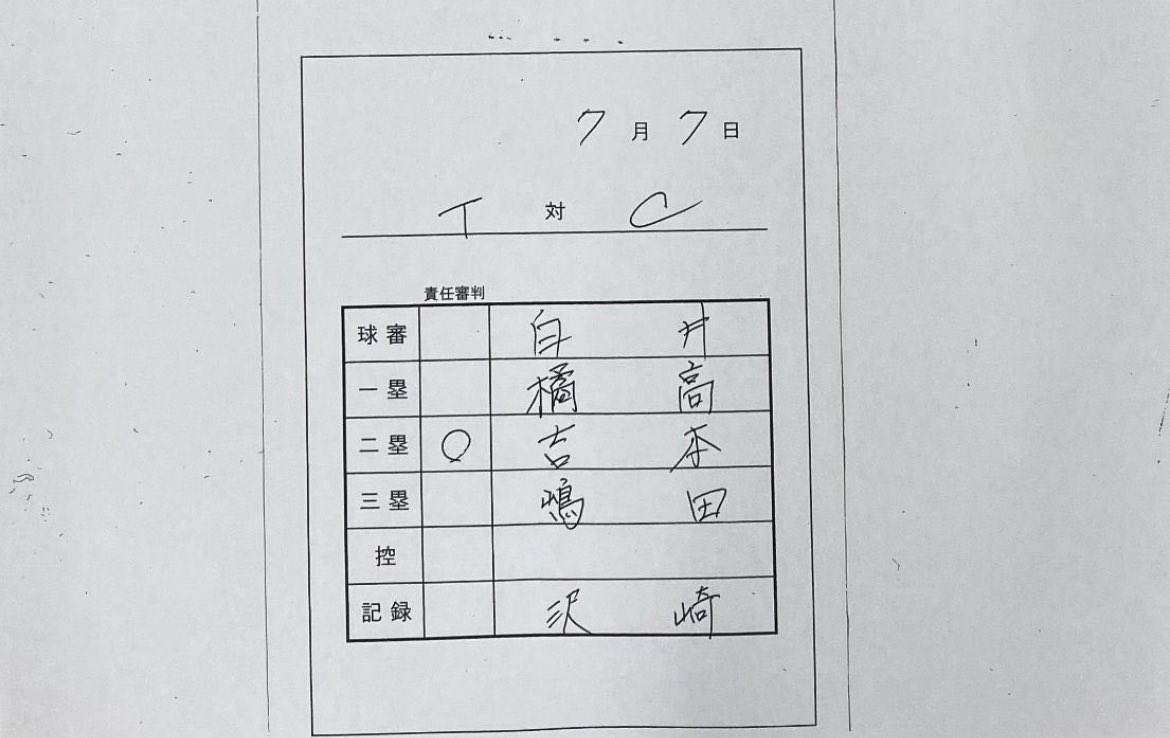 7月7日
T 対 C
責任審判
球審 白井
一塁 橘高
二塁 ○ 吉本
三塁 嶋田
控
記録 沢崎